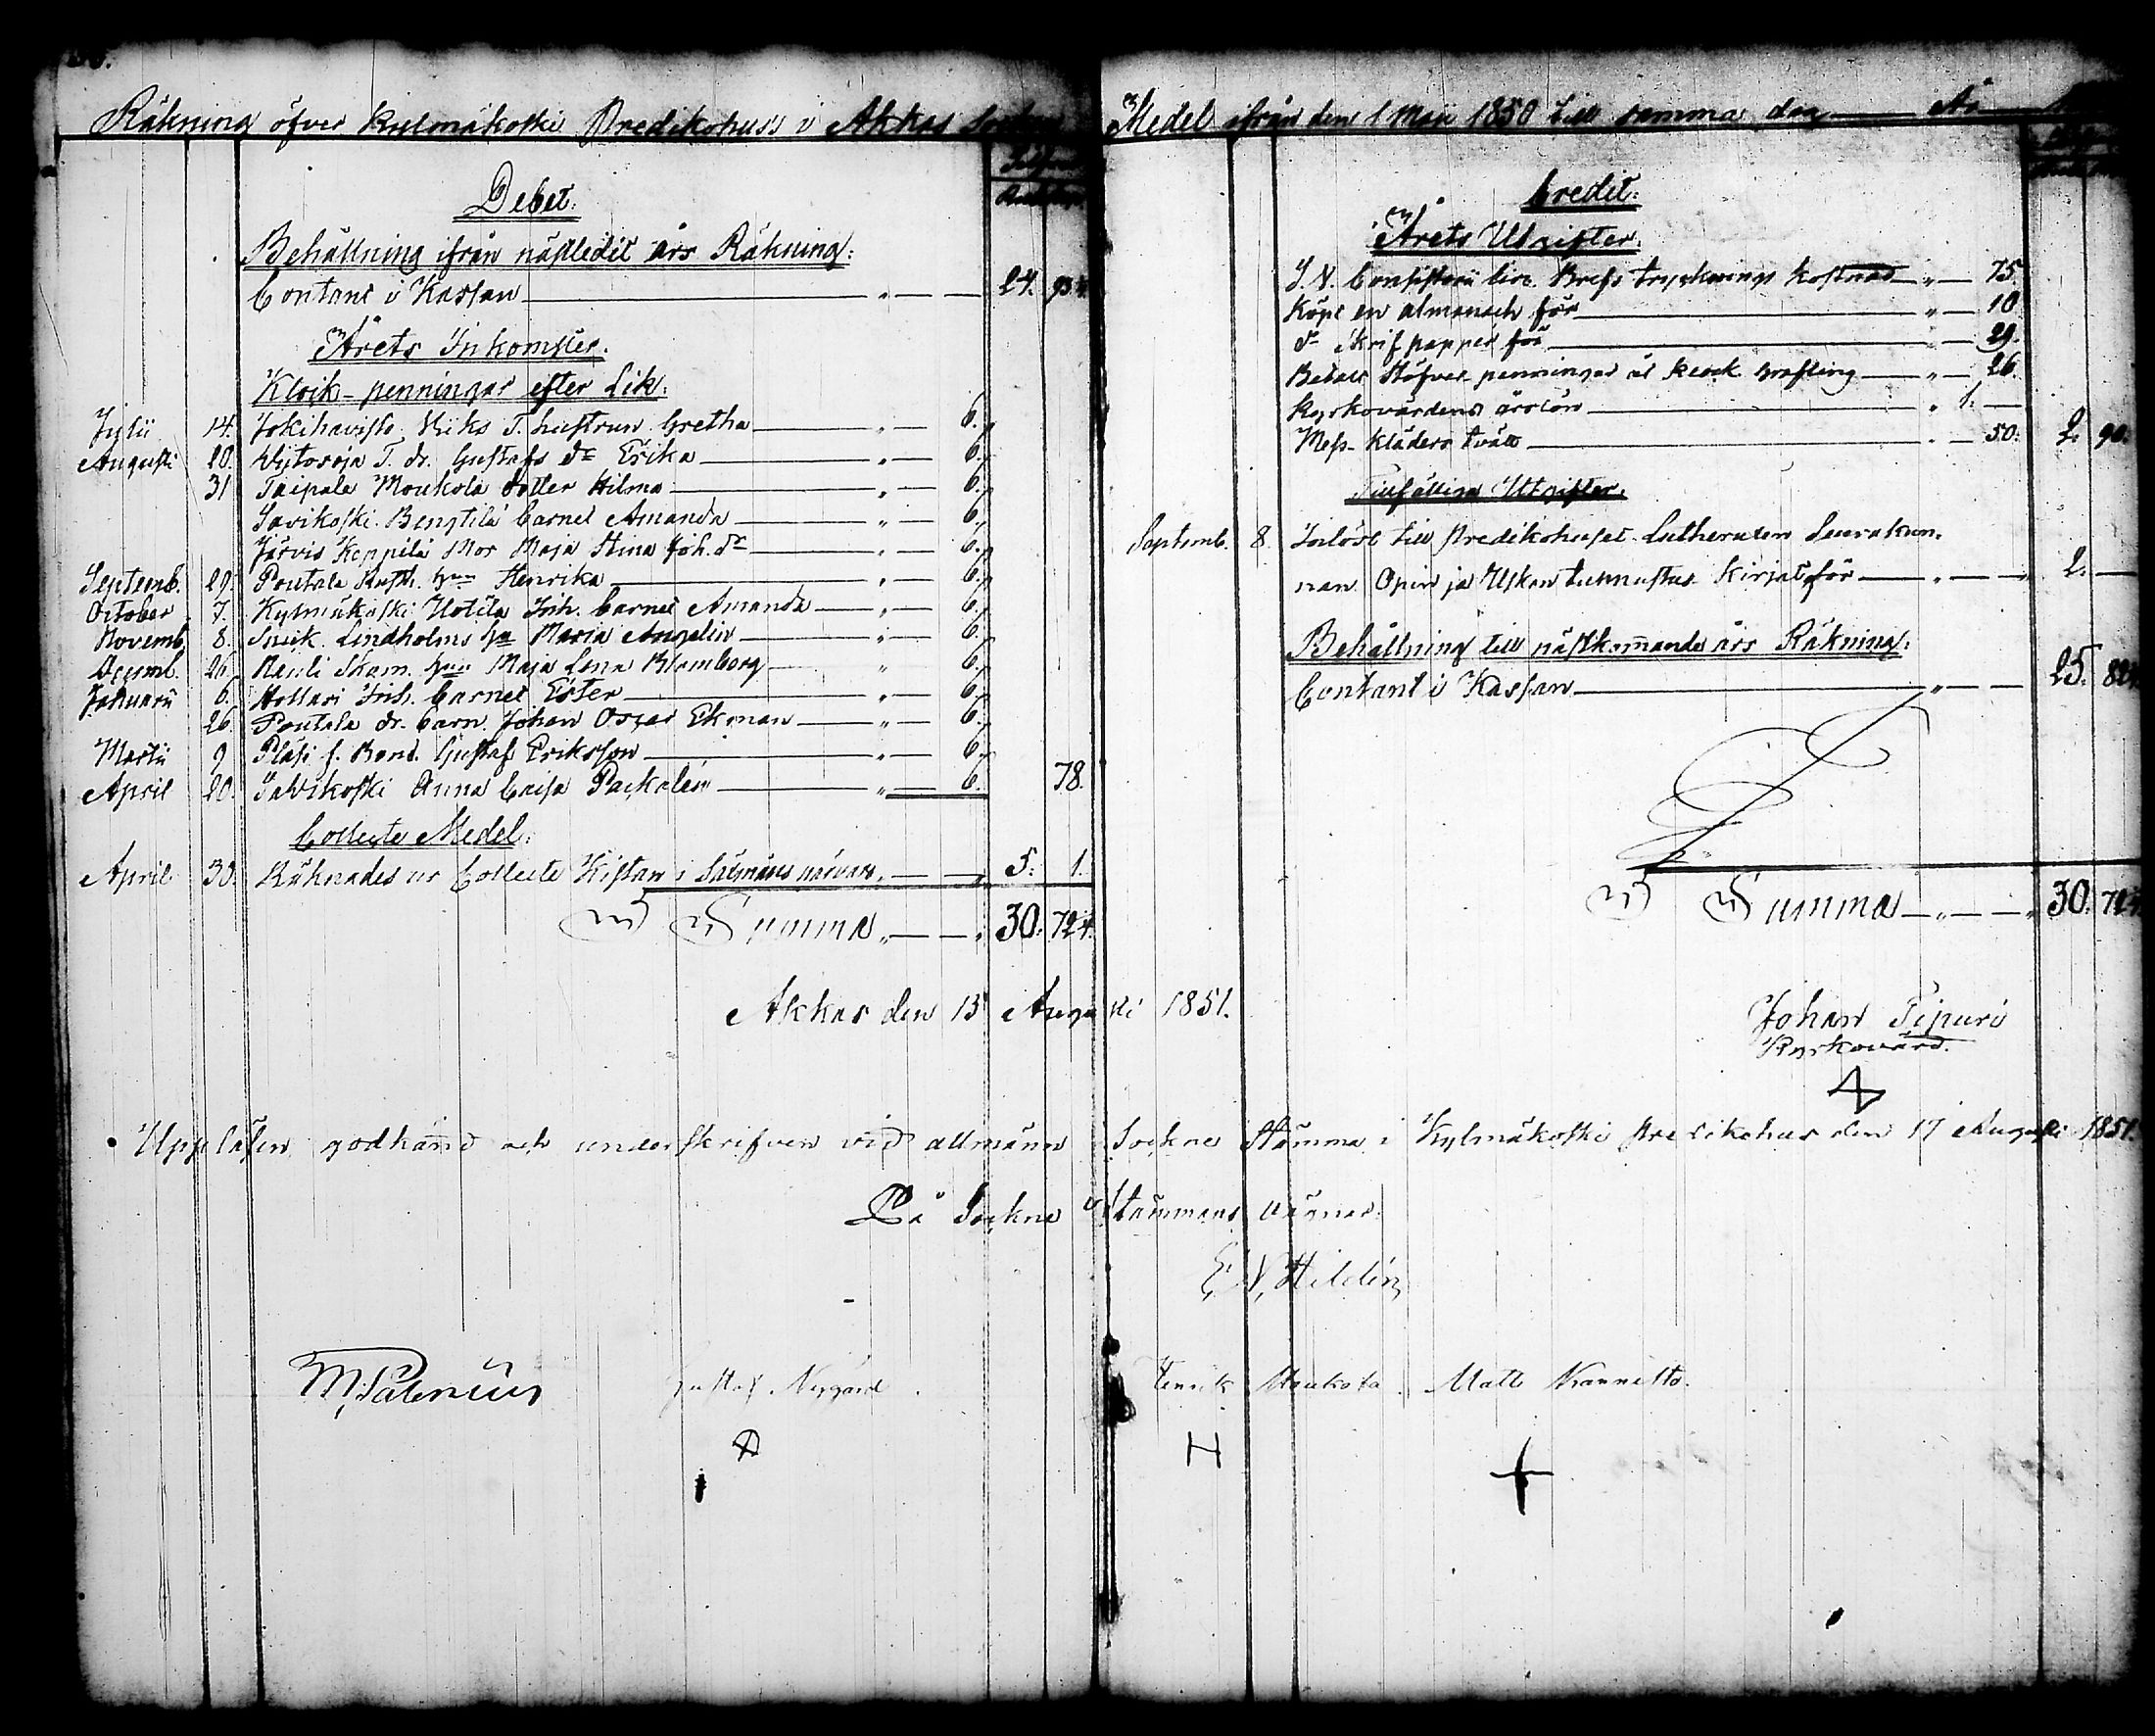 Räkning öfver Kylmäkoski Predikohus's i Akkas Sockn
Debet:
Behållning ifrån nästledit års Räkning:
Contant i Kassan 24. 93
Årets Inkomster.
Klock-penningar efter Lik:
Julii 14. Jokihavisto Hiiks T. hustrun Gretha 6.
Augusti 20. T. dr. Gustafs dr Erika 6.
31 Taipale Moukola dotter Hilma 6.
Savikoski Bengtilä barnet Amanda 6.
Järvis Keppilä Mor Maja Stina Joh. dr 6.
Septemb. 29. Pontala Henrika 6.
October 7. Kylmäkoski Uotila Inh. barnet Amanda 6.
Novemb. 8. Lindholms Maria Angelin 6.
Decemb. 26. Rauli Maja Lena Blomberg 6.
Januarii 6. Hollari Inh. barnet Ester 6.
26. Pontala dr. barn Johan Oscar Ekman 6.
Martii 9 f. Bond. Gustaf Eriksson 6.
April 20. Savikoski Anna Caisa Packalén 6. 78.
Collecte Medel:
April 30. Räknades ur Collecte Kistan i närvaro 5. 1.
Summa 30. 72
Medel ifrån den 1 Maji 1850 till samma dag År
Credit:
Årets Utgifter.
Consistorii Circ. Brefs trycknings kostnad 75.
Köpt en almanach för 10
dr Skrifpapper för 29.
Betalt Stöfvel penningar åt Klock. 26.
Kyrkovärdens årslön 1.
Mess-Kläders tvätt 50. 2. 90.
Tillfälliga Utgifter.
Septemb. 8. Inlöst till Predikohuset Lutheruxen Seurakun-
nan Opin ja Uskon tunnustus Kirjat för 2.
Behållning till nästkommande års Räkning:
Contant i Kassan 25. 82
Summa 30. 72
Akkas den 15 Augusti 1851.
Johan Sipuri
Kyrkovärd.
Uppläsen, godkänd och underskrifven vid allmänn Sockne Stämma i Kylmäkoski Predikohus den 17 Augusti 1851.
På Sockne Stämmans vägnar:
Hildén
M. Palenius Gustaf Nygård Henrik Moukola Matts Kannisto
H